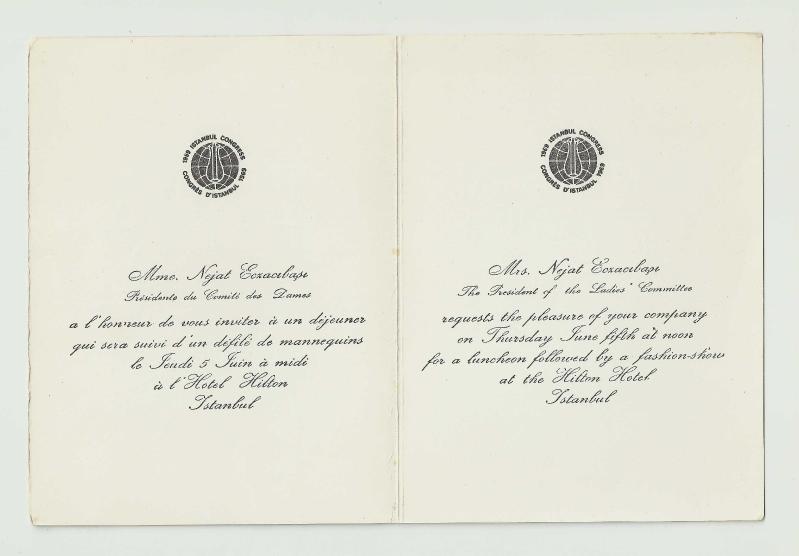 1969 ISTANBUL CONGRESS
CONGRÈS D'ISTANBUL 1969
Mme. Nejat Eczacıbaşı
Présidente du Comité des Dames
a l'honneur de vous inviter à un déjeuner
qui sera suivi d'un défilé de mannequins
le Jeudi 5 Juin à midi
à l'Hotel Hilton
Istanbul
1969 ISTANBUL CONGRESS
CONGRÈS D'ISTANBUL 1969
Mrs. Nejat Eczacıbaşı
The President of the Ladies' Committee
requests the pleasure of your company
on Thursday June fifth at noon
for a luncheon followed by a fashion-show
at the Hilton Hotel
Istanbul